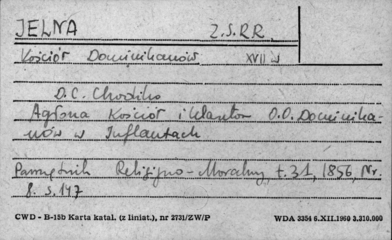 JELNA Z.S.R.R.
Kościół Dominikanów XVII w
D.C. Chodźko
Agłona Kościół i klasztor O.O. Dominika-
nów w Inflantach
Pamiętnik Religijno-Moralny t.31, 1856, Nr.
8. s.147
CWD - B-15b Karta katal. (z liniat.), nr 2731/ZW/P WDA 3354 6.XII.1960 3.310.000